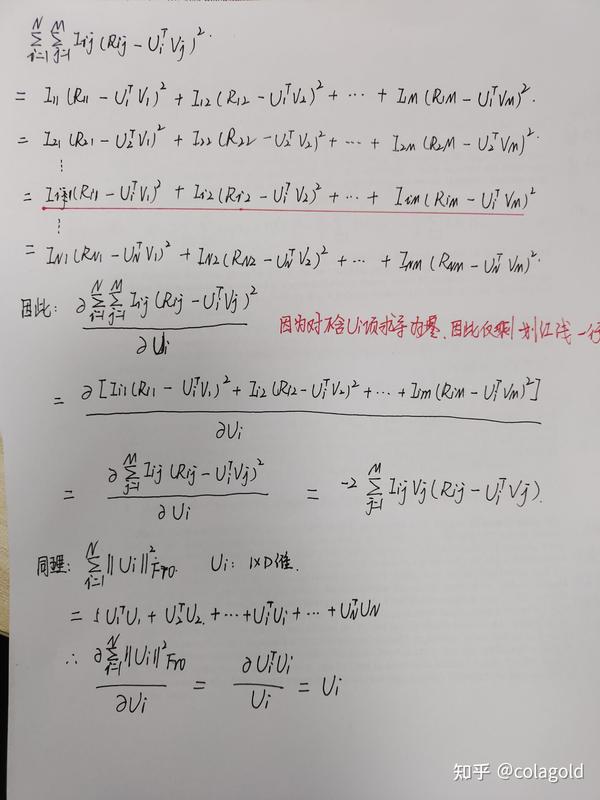 ∑_{i=1}^{N} ∑_{j=1}^{M} I_{ij} (R_{ij} - U_i^T V_j)^2.
= I_{11} (R_{11} - U_1^T V_1)^2 + I_{12} (R_{12} - U_1^T V_2)^2 + ⋯ + I_{1M} (R_{1M} - U_1^T V_M)^2.
= I_{21} (R_{21} - U_2^T V_1)^2 + I_{22} (R_{22} - U_2^T V_2)^2 + ⋯ + I_{2M} (R_{2M} - U_2^T V_M)^2.
⋮
= I_{i1} (R_{i1} - U_i^T V_1)^2 + I_{i2} (R_{i2} - U_i^T V_2)^2 + ⋯ + I_{iM} (R_{iM} - U_i^T V_M)^2
⋮
= I_{N1} (R_{N1} - U_N^T V_1)^2 + I_{N2} (R_{N2} - U_N^T V_2)^2 + ⋯ + I_{NM} (R_{NM} - U_N^T V_M)^2.
因此: ∂ ∑_{i=1}^{N} ∑_{j=1}^{M} I_{ij} (R_{ij} - U_i^T V_j)^2 / ∂U_i
因为对不含Ui项求导为零,因此仅剩划红线一行
= ∂ [I_{i1} (R_{i1} - U_i^T V_1)^2 + I_{i2} (R_{i2} - U_i^T V_2)^2 + ⋯ + I_{iM} (R_{iM} - U_i^T V_M)^2] / ∂U_i
= ∂ ∑_{j=1}^{M} I_{ij} (R_{ij} - U_i^T V_j)^2 / ∂U_i = -2 ∑_{j=1}^{M} I_{ij} V_j (R_{ij} - U_i^T V_j).
同理: ∑_{i=1}^{N} ||U_i||^2_{Fro}. U_i: 1×D维.
= U_1^T U_1 + U_2^T U_2 + ⋯ + U_i^T U_i + ⋯ + U_N^T U_N
∴ ∂ ∑_{i=1}^{N} ||U_i||^2_{Fro} / ∂U_i = ∂ U_i^T U_i / U_i = U_i
知乎 @colagold